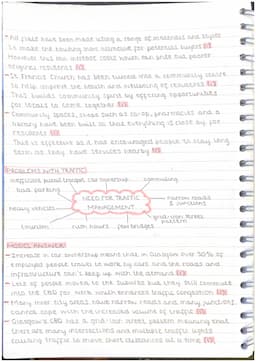 - All flats have been made using a range of materials and styles
to make the housing more attractive for potential buyers
However this can increase costs which can price out poorer
original residents
- St Francis Church has been turned into a community centre
to help improve the health and wellbeing of residents
This builds community spirit by offering opportunities
for locals to come together
- Community spaces, shops such as co-op, pharmacies and a
nursery have been built so that everything is close by for
residents
This is effective as it has encouraged people to stay long
term as they have services nearby
PROBLEMS WITH TRAFFIC:
inefficient public transport
car ownership
commuting
bad parking
NEED FOR TRAFFIC
MANAGEMENT
narrow roads
& junctions
heavy vehicles
grid-iron street
pattern
tourism
rush hours
few bridges
MODEL ANSWER:
- Increase in car ownership means that in Glasgow over 50% of
employed people travel to work by cars and the roads and
infrastructure can't keep up with the demand
- Lots of people moved to the suburbs but they still commute
into the CBD for work which enhances traffic congestion
- Many inner city areas have narrow roads and many junctions
cannot cope with the increased volume of traffic
- Glasgow's CBD has a grid-iron street pattern meaning that
there are many intersections and multiple traffic lights
causing traffic to move short distances at a time